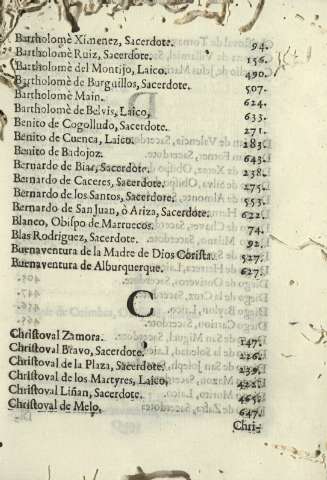 Bartholomè Ximenez, Sacerdote. 94.
Bartholomè Ruiz, Sacerdote. 156.
Bartholomè del Montijo, Laico. 490.
Bartholomè de Burguillos, Sacerdote. 507.
Bartholomè Main. 624.
Bartholomè de Belvis, Laico, 633.
Benito de Cogolludo, Sacerdote. 271.
Benito de Cuenca, Laico. 283.
Benito de Badajoz. 643.
Bernardo de Bias, Sacerdote. 238.
Bernardo de Caceres, Sacerdote. 275.
Bernardo de los Santos, Sacerdore. 553.
Bernardo de San Juan, ò Ariza, Sacerdote. 622.
Blanco, Obispo de Marruecos. 74.
Blas Rodriguez, Sacerdote. 92.
Buenaventura de la Madre de Dios Corista. 527.
Buenaventura de Alburquerque. 627.
C
Christoval Zamora. 147.
Christoval Bravo, Sacerdote. 226.
Christoval de la Plaza, Sacerdote. 239.
Christoval de los Martyres, Laico, 422.
Christoval Liñan, Sacerdote. 465.
Christoval de Melo. 647.
Chri-